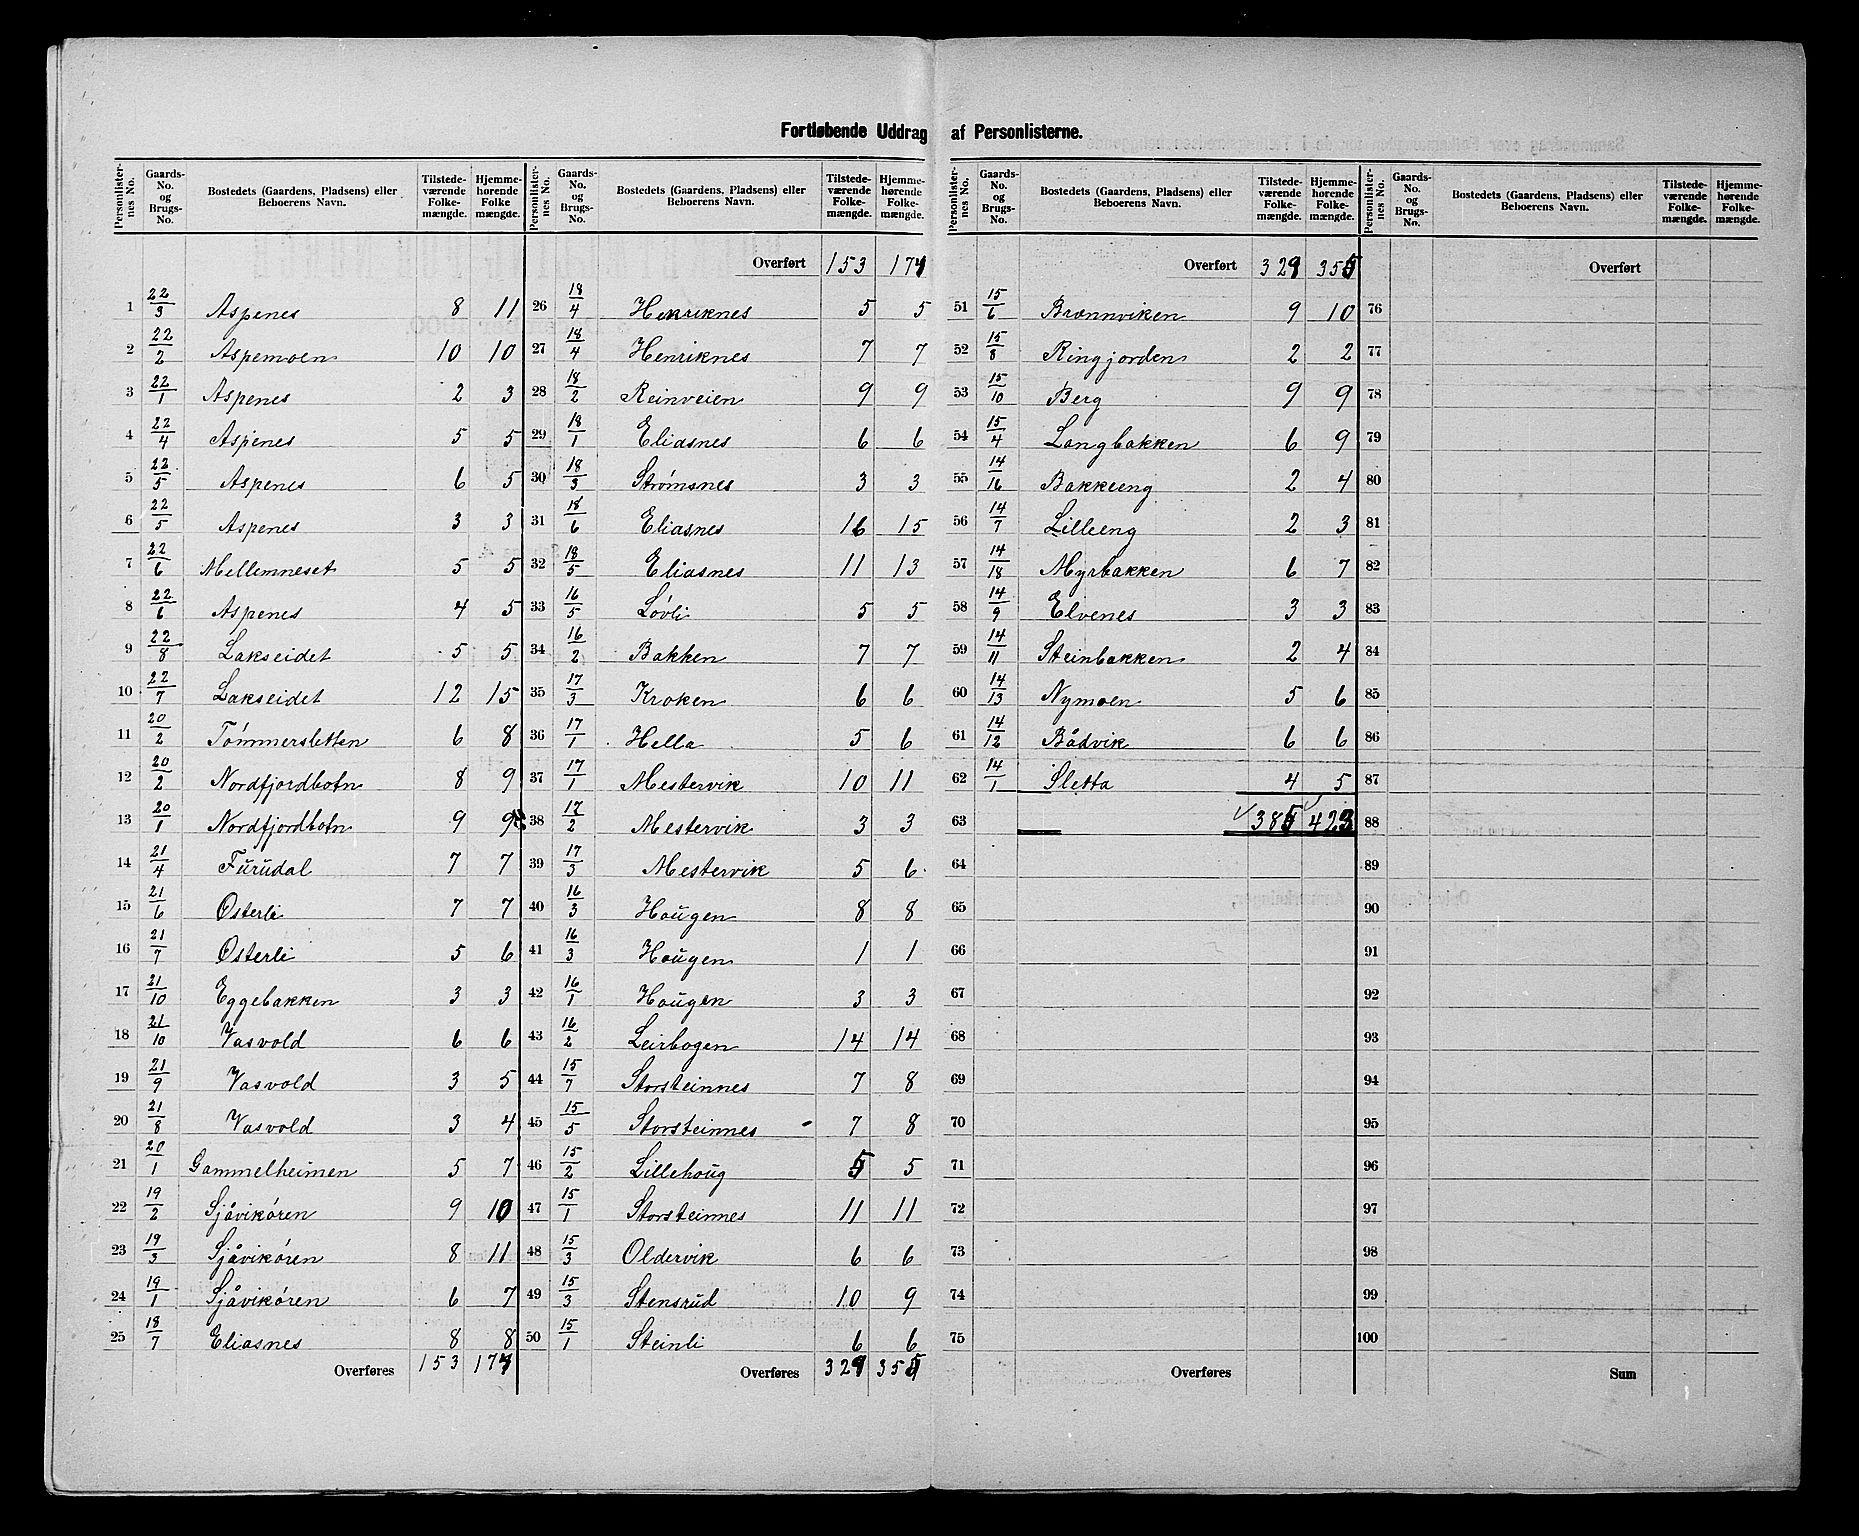 Fortløbende Uddrag af Personlisterne.
Personlisternes No. | Gaards-No. og Brugs-No. | Bostedets (Gaardens, Pladsens) eller Beboerens Navn. | Tilstedeværende Folkemængde. | Hjemmehørende Folkemængde.
1 22/3 Aspenes 8 11
2 22/2 Aspemoen 10 10
3 22/1 Aspenes 2 3
4 22/4 Aspenes 5 5
5 22/5 Aspenes 6 5
6 22/5 Aspenes 3 3
7 22/6 Mellemneset 5 5
8 22/6 Aspenes 4 5
9 22/8 Lakseidet 5 5
10 22/7 Lakseidet 12 15
11 20/2 Tømmersletten 6 8
12 20/2 Nordfjordbotn 8 9
13 20/1 Nordfjordbotn 9 9
14 21/4 Furudal 7 7
15 21/6 Østerli 7 7
16 21/7 Østerli 5 6
17 21/10 Eggebakken 3 3
18 21/10 Vasvold 6 6
19 21/9 Vasvold 3 5
20 21/8 Vasvold 3 4
21 20/1 Gammelheimen 5 7
22 19/2 Sjåvikøren 9 10
23 19/3 Sjåvikøren 8 11
24 19/1 Sjåvikøren 6 7
25 18/7 Eliasnes 8 8
Overføres 153 174
Personlisternes No. | Gaards-No. og Brugs-No. | Bostedets (Gaardens, Pladsens) eller Beboerens Navn. | Tilstedeværende Folkemængde. | Hjemmehørende Folkemængde.
Overført 153 174
26 18/4 Henriknes 5 5
27 18/4 Henriknes 7 7
28 18/2 Reinveien 9 9
29 18/1 Eliasnes 6 6
30 18/3 Strømsnes 3 3
31 18/6 Eliasnes 16 15
32 18/5 Eliasnes 11 13
33 16/5 Løvli 5 5
34 16/2 Bakken 7 7
35 17/3 Kroken 6 6
36 17/1 Hella 5 6
37 17/1 Mestervik 10 11
38 17/2 Mestervik 3 3
39 17/3 Mestervik 5 6
40 16/3 Hougen 8 8
41 16/3 Hougen 1 1
42 16/1 Hougen 3 3
43 16/2 Leirbogen 14 14
44 15/7 Storsteinnes 7 8
45 15/5 Storsteinnes 7 8
46 15/2 Lillehoug 5 5
47 15/1 Storsteinnes 11 11
48 15/3 Oldervik 6 6
49 15/3 Stensrud 10 9
50 15/1 Steinli 6 6
Overføres 329 355
Personlisternes No. | Gaards-No. og Brugs-No. | Bostedets (Gaardens, Pladsens) eller Beboerens Navn. | Tilstedeværende Folkemængde. | Hjemmehørende Folkemængde.
Overført 329 355
51 15/6 Brønnviken 9 10
52 15/8 Ringjorden 2 2
53 15/10 Berg 9 9
54 15/4 Langbakken 6 9
55 14/16 Bakkeeng 2 4
56 14/7 Lilleeng 2 3
57 14/18 Myrbakken 6 7
58 14/9 Elvenes 3 3
59 14/11 Steinbakken 2 4
60 14/13 Nymoen 5 6
61 14/12 Bådvik 6 6
62 14/1 Sletta 4 5
63 385 423
64
65
66
67
68
69
70
71
72
73
74
75
Overføres
Personlisternes No. | Gaards-No. og Brugs-No. | Bostedets (Gaardens, Pladsens) eller Beboerens Navn. | Tilstedeværende Folkemængde. | Hjemmehørende Folkemængde.
Overført
76
77
78
79
80
81
82
83
84
85
86
87
88
89
90
91
92
93
94
95
96
97
98
99
100
Sum